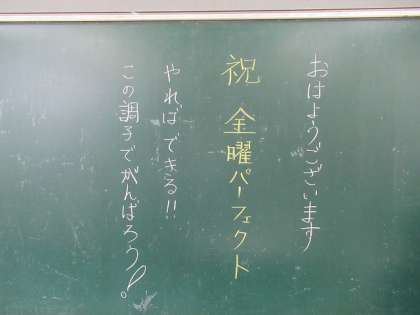 おはようございます
祝 金曜パーフェクト
やればできる!!
この調子でがんばろう!